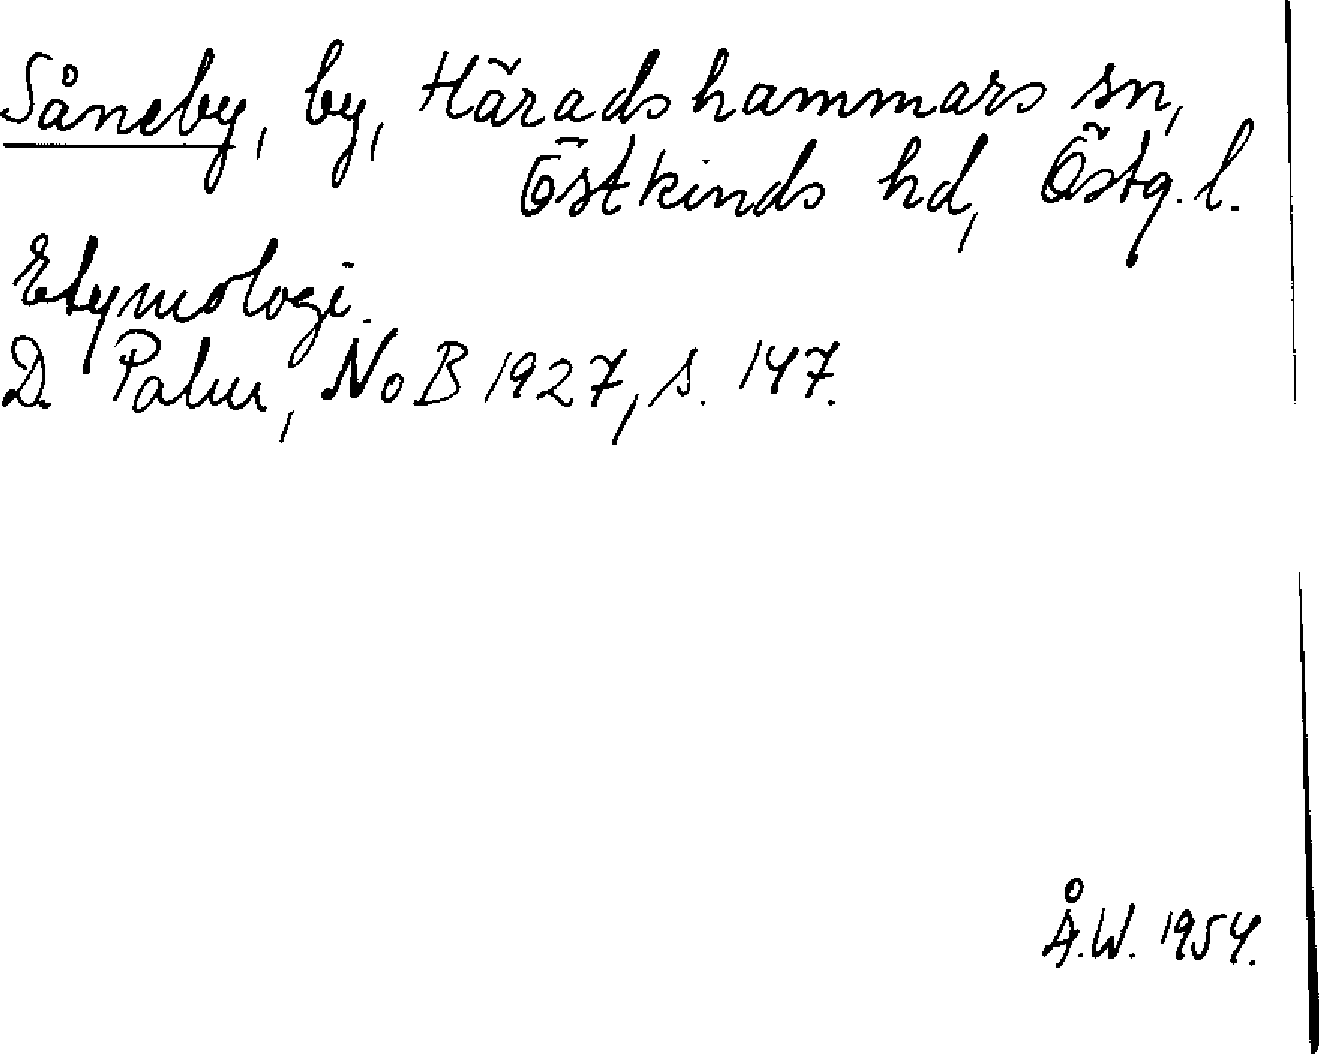 Såneby, by, Häradshammars sn,
Östkinds hd, Östg. l.
Etymologi.
D. Palm, NoB 1927, s. 147.
Å.W. 1954.